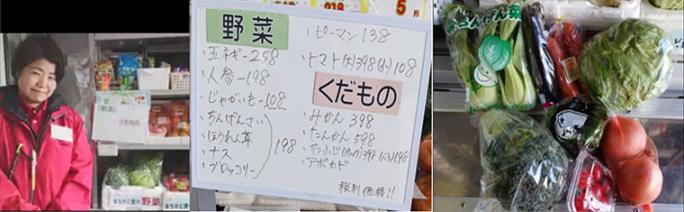 018
5円
野菜
・玉ネギー258
・人参ー198
・じゃがいもー108
・ちんげんさい
・ほうれん草
・ナス
・ブロッコリー
198
・ピーマン138
・トマト(大)398(小)108
くだもの
・みかん 398
・たんかん 598
・アボカド
税別価格!!
野菜